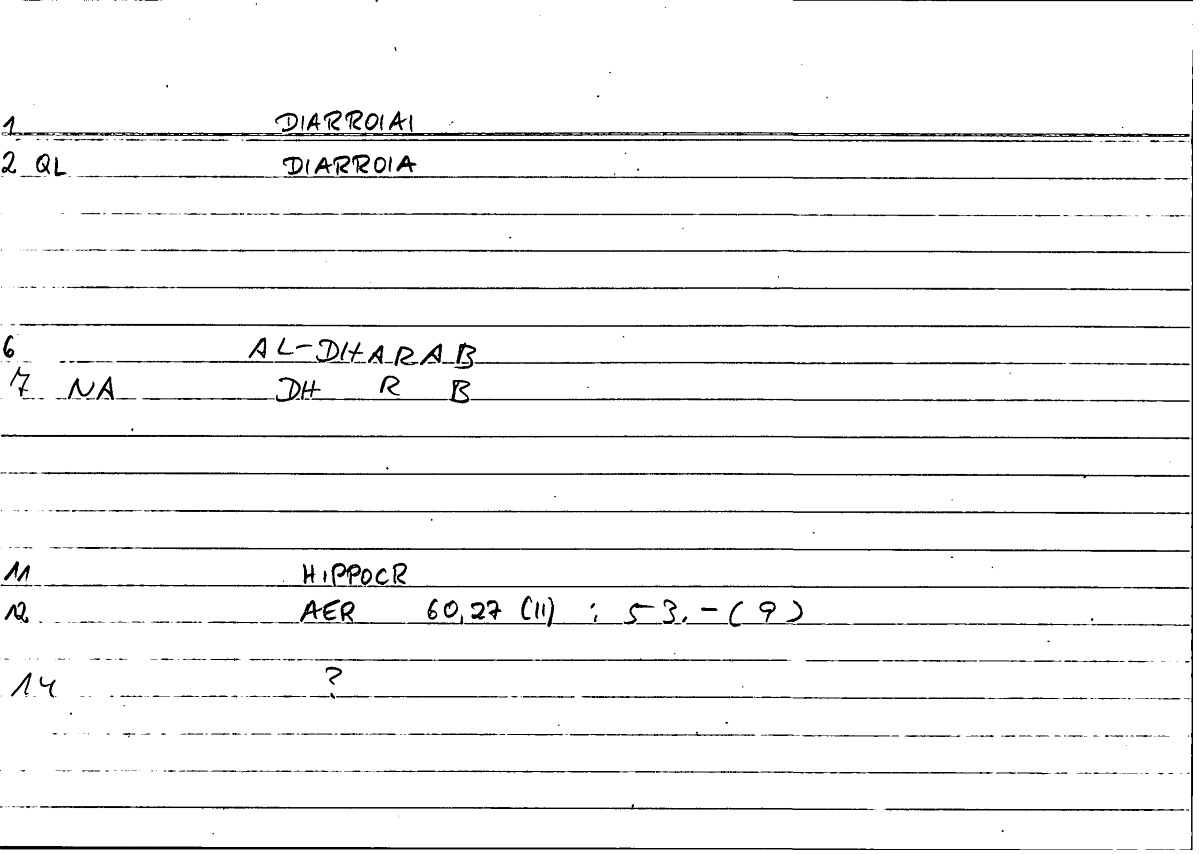 1 DIARROIAI
2 QL DIARROIA
6 AL-DHARAB
7 NA DH R B
11 HIPPOCR
12 AER 60,27 (11) : 53.-(9)
14 ?